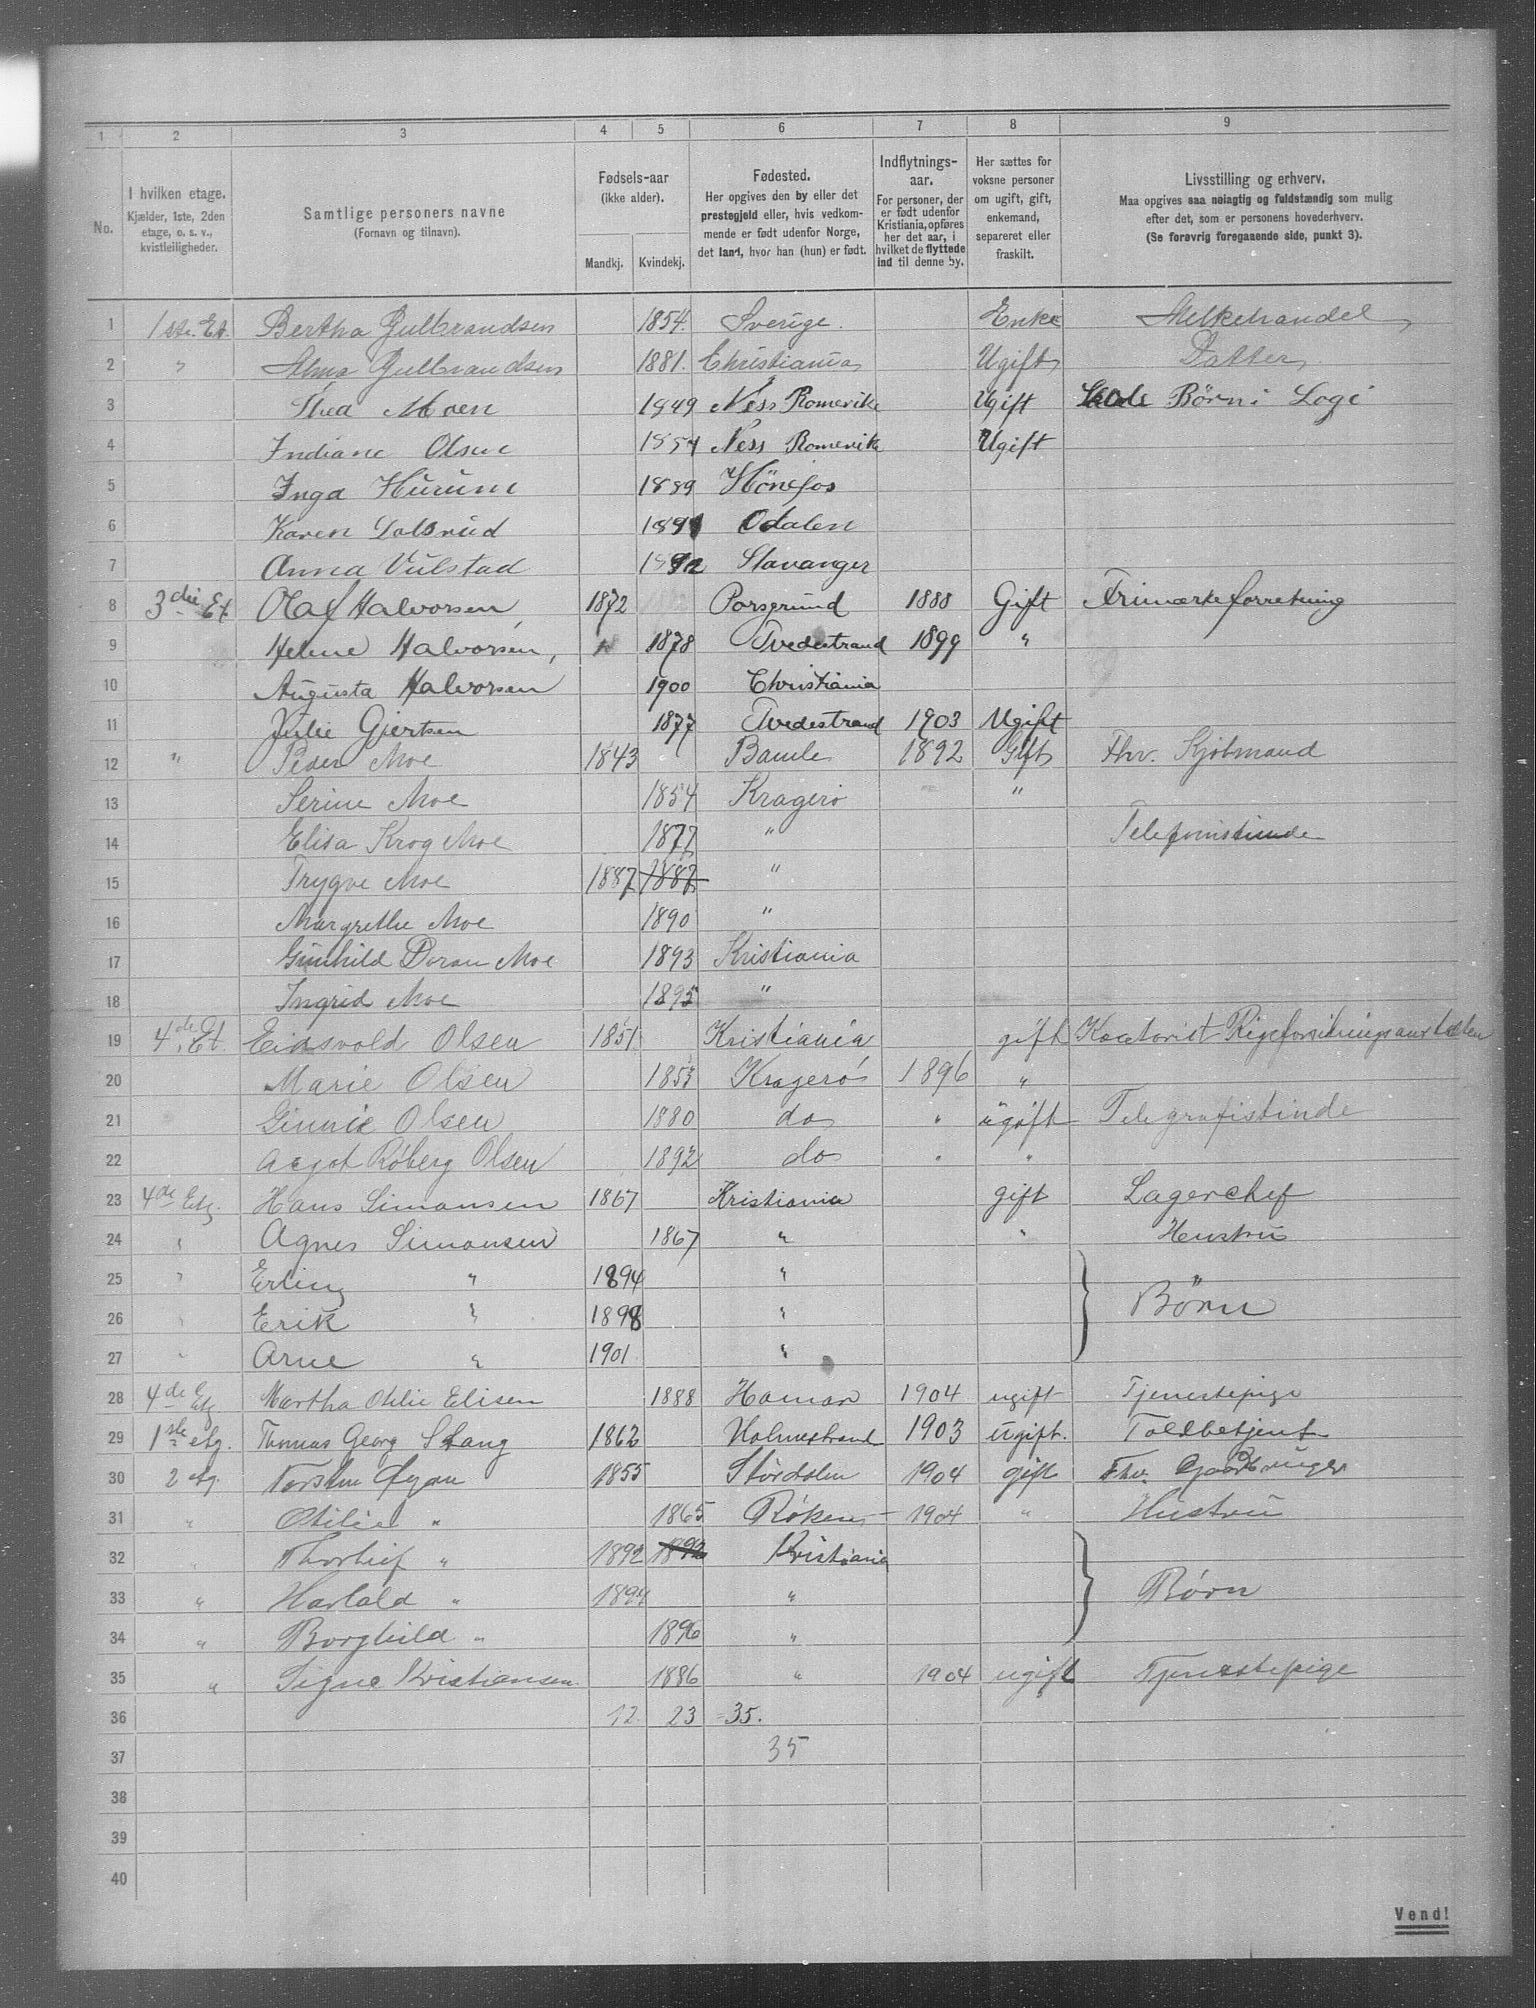 1 2 3 4 5 6 7 8 9
No.
I hvilken etage.
Kjælder, 1ste, 2den
etage, o. s. v.,
kvistleiligheder.
Samtlige personers navne
(Fornavn og tilnavn).
Fødsels-aar
(ikke alder).
Mandkj. Kvindekj.
Fødested.
Her opgives den by eller det
prestegjeld eller, hvis vedkom-
mende er født udenfor Norge,
det land, hvor han (hun) er født.
Indflytnings-
aar.
For personer, der
er født udenfor
Kristiania, opføres
her det aar, i
hvilket de flyttede
ind til denne by.
Her sættes for
voksne personer
om ugift, gift,
enkemand,
separeret eller
fraskilt.
Livsstilling og erhverv.
Maa opgives saa nøiagtig og fuldstændig som mulig
efter det, som er personens hovederhverv.
(Se forøvrig foregaaende side, punkt 3).
1 1ste. Et. Bertha Gulbrandsen 1854. Sverige. Enke Melkehandel
2 " Alma Gulbrandsen 1881. Christiania Ugift Datter
3 Thea Moen 1849 Ness Romerike Ugift Børn i Logi
4 Indiane Olsen 1854 Ness Romerike Ugift
5 Inga Hurum 1889 Hönefos
6 Karen Dalsrud 1891 Odalen
7 Anna Vulstad 1892 Stavanger
8 3die Et. Olaf Halvorsen, 1872 Porsgrund 1888 Gift Frimærkeforretning
9 Helene Halvorsen, 1878 Tvedestrand 1899 "
10 Augusta Halvorsen 1900 Christiania
11 Julie Gjertsen 1877 Tvedestrand 1903 Ugift
12 " Peder Moe 1843 Bamle 1892 Gift Fhv. Kjøbmand
13 Serine Moe 1854 Kragerø "
14 Elisa Krog Moe 1877 " Telefonistinde
15 Trygve Moe 1887 1887 "
16 Margrethe Moe 1890 "
17 Gunhild Doran Moe 1893 Kristiania
18 Ingrid Moe 1895 "
19 4de Et. Eidsvold Olsen 1851 Kristiania gift Kontorist Rigsforsikringsanstalten
20 Marie Olsen 1853 Kragerø 1896 "
21 Ginnie Olsen 1880 do " ugift Telegrafistinde
22 Aagot Røberg Olsen 1892 do " "
23 4de Etg. Hans Simonsen 1867 Kristiania gift Lagerchef
24 " Agnes Simonsen 1867 " " Hustru
25 " Erling " 1894 "
26 " Erik " 1898 " } Børn
27 " Arne " 1901 "
28 4de Etg Martha Otilie Elisen 1888 Hamar 1904 ugift Tjenestepige
29 1ste etg. Thomas Georg Stang 1862 Holmestrand 1903 ugift. Toldbetjent
30 2 etg. Torsten Øyan 1855 Stördalen 1904 gift Fhv. Gaardbruger
31 " Otilie " 1865 Røken 1904 " Hustru
32 " Thorleif " 1892 1892 Kristiania
33 " Harlald " 1894 " } Børn
34 " Borghild " 1896 "
35 " Signe Kristiansen 1886 " 1904 ugift Tjenestepige
36 12. 23 = 35.
37 35
38
39
40
Vend!